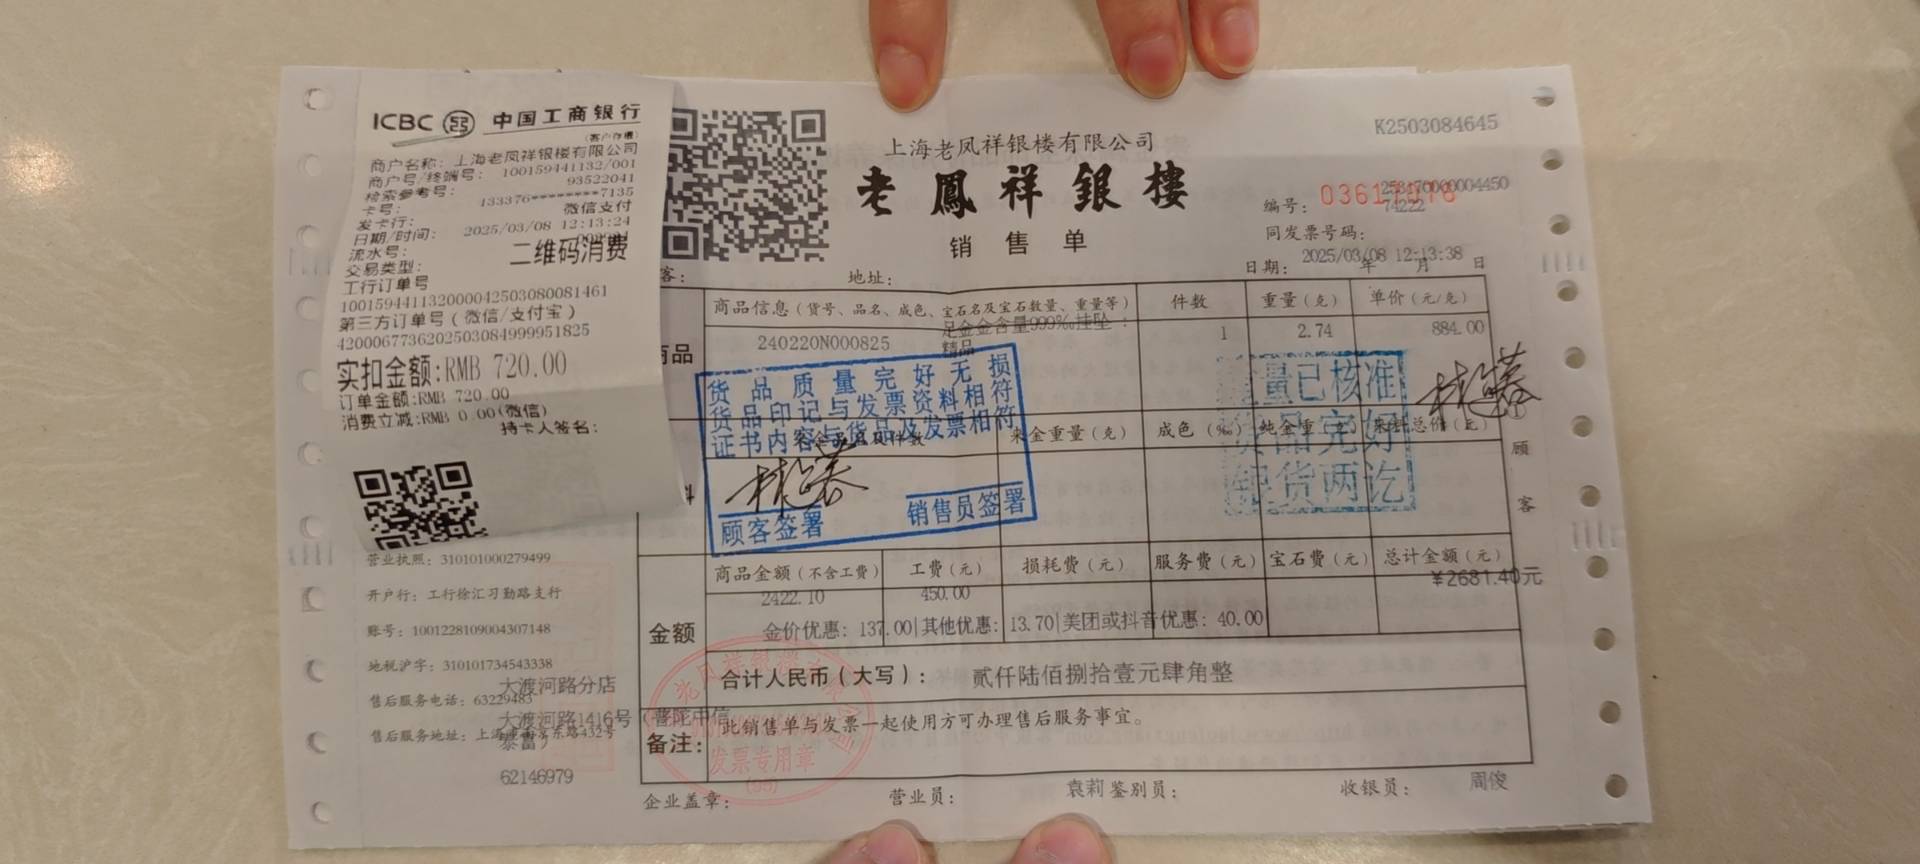 ICBC 中国工商银行
(客户存根)
商户名称: 上海老凤祥银楼有限公司
商户号/终端号: 100159441132/001
93522041
检索参考号:
卡号: 133376********7135
发卡行: 微信支付
日期/时间: 2025/03/08 12:13:24
流水号:
交易类型: 二维码消费
工行订单号
100159441132000042503080081461
第三方订单号(微信/支付宝)
4200067736202503084999951825
实扣金额:RMB 720.00
订单金额:RMB 720.00
消费立减:RMB 0.00(微信)
持卡人签名:
K2503084645
上海老凤祥银楼有限公司
老鳳祥銀樓
销售单
编号:
74222
同发票号码:
日期: 2025/03/08 12:13:38
年 月 日
客:
地址:
商品
商品信息(货号、品名、成色、宝石名及宝石数量、重量等) 件数 重量(克) 单价(元/克)
240220N000825 足金金含量999‰挂坠: 1 2.74 884.00
精品
货品质量完好无损
货品印记与发票资料相符
证书内容与货品及发票相符
顾客签署 销售员签署
量已核准
货品完好
银货两讫
来金重量(克) 成色(‰) 纯金重(克)
料
①
顾
客
金额
商品金额(不含工费) 工费(元) 损耗费(元) 服务费(元) 宝石费(元) 总计金额(元)
2422.10 450.00 ¥2681.40元
金价优惠: 137.00|其他优惠: 13.70|美团或抖音优惠: 40.00
合计人民币(大写): 贰仟陆佰捌拾壹元肆角整
备注:
此销售单与发票一起使用方可办理售后服务事宜。
发票专用章
营业执照: 310101000279499
开户行: 工行徐汇习勤路支行
账号: 1001228109004307148
地税沪字: 310101734543338
大渡河路分店
售后服务电话: 63229483
大渡河路1416号(普陀中信
泰富)
售后服务地址: 上海南京东路432号
62146979
企业盖章: 营业员: 袁莉 鉴别员: 收银员: 周俊